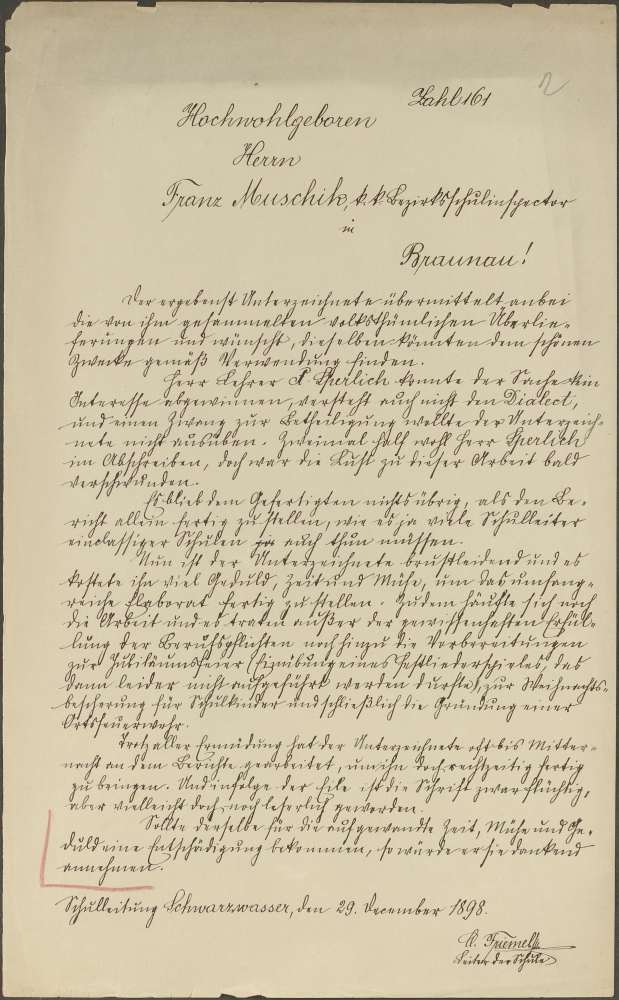 2
Zahl 161
Hochwohlgeboren
Herrn
Franz Muschik, k. k. Bezirksschulinspector
in
Braunau!
Der ergebenst Unterzeichnete übermittelt anbei
die von ihm gesammelten volksthümlichen Überlie-
ferungen und wünscht, dieselben könnten dem schönen
Zwecke gemäß Verwendung finden.
Herr Lehrer J. Sperlich konnte der Sache kein
Interesse abgewinnen, versteht auch nicht den Dialect,
und einen Zwang zur Betheiligung wollte der Unterzeich-
nete nicht ausüben. Zweimal half wohl Herr Sperlich
im Abschreiben, doch war die Lust zu dieser Arbeit bald
verschwunden.
Es blieb dem Gefertigten nichts übrig, als den Be-
richt allein fertig zu stellen, wie es ja viele Schulleiter
einclassiger Schulen auch thun müssen.
Nun ist der Unterzeichnete brustleidend und es
kostete ihn viel Geduld, Zeit und Mühe, um das umfang-
reiche Elaborat fertig zu stellen. Zudem häufte sich noch
die Arbeit und es traten außer der gewissenhaften Erfül-
lung der Berufspflichten noch hinzu die Vorbereitungen
zur Jubiläumsfeier (Einübung eines Festliederspieles, das
dann leider nicht aufgeführt werden durfte), zur Weihnachts-
bescherung für Schulkinder und schließlich die Gründung einer
Ortsfeuerwehr.
Trotz aller Ermüdung hat der Unterzeichnete oft bis Mitter-
nacht an dem Berichte gearbeitet, um ihn doch rechtzeitig fertig
zu bringen. Und infolge der Eile ist die Schrift zwar flüchtig,
aber vielleicht doch noch leserlich geworden.
Sollte derselbe für die aufgewandte Zeit, Mühe und Ge-
duld eine Entschädigung bekommen, so würde er sie dankend
annehmen.
Schulleitung Schwarzwasser, den 29. December 1898.
A. Triemel
Leiter der Schule